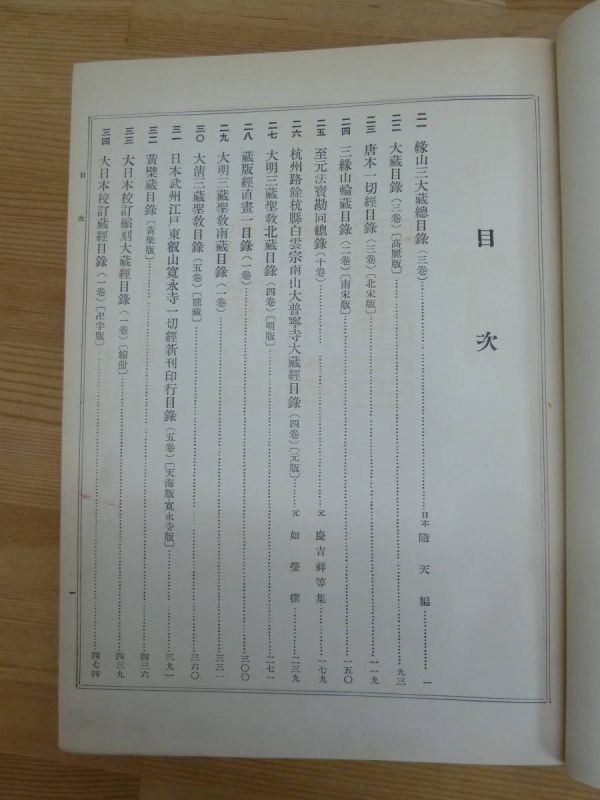 目次
二一 緣山三大藏總目錄（三卷）……日本 隨天編……一
二二 大藏目錄（三卷）〔高麗版〕……九三
二三 唐本一切經目錄（三卷）〔北宋版〕……一一九
二四 三緣山輪藏目錄（二卷）〔南宋版〕……一五〇
二五 至元法寶勘同總錄（十卷）……元 慶吉祥等集……一七九
二六 杭州路餘杭縣白雲宗南山大普寧寺大藏經目錄（四卷）〔元版〕……元 如瑩撰……二三九
二七 大明三藏聖敎北藏目錄（四卷）〔明版〕……二七一
二八 藏版經直畫一目錄（一卷）……三〇〇
二九 大明三藏聖敎南藏目錄（一卷）……三三一
三〇 大淸三藏聖敎目錄（五卷）〔龍藏〕……三六〇
三一 日本武州江戶東叡山寬永寺一切經新刊印行目錄（五卷）〔天海版・寬永寺版〕……三九一
三二 黃檗藏目錄〔黃檗版〕……四三六
三三 大日本校訂縮刻大藏經目錄（一卷）〔縮冊〕……四三九
三四 大日本校訂藏經目錄（一卷）〔卍字版〕……四七四
目次
一